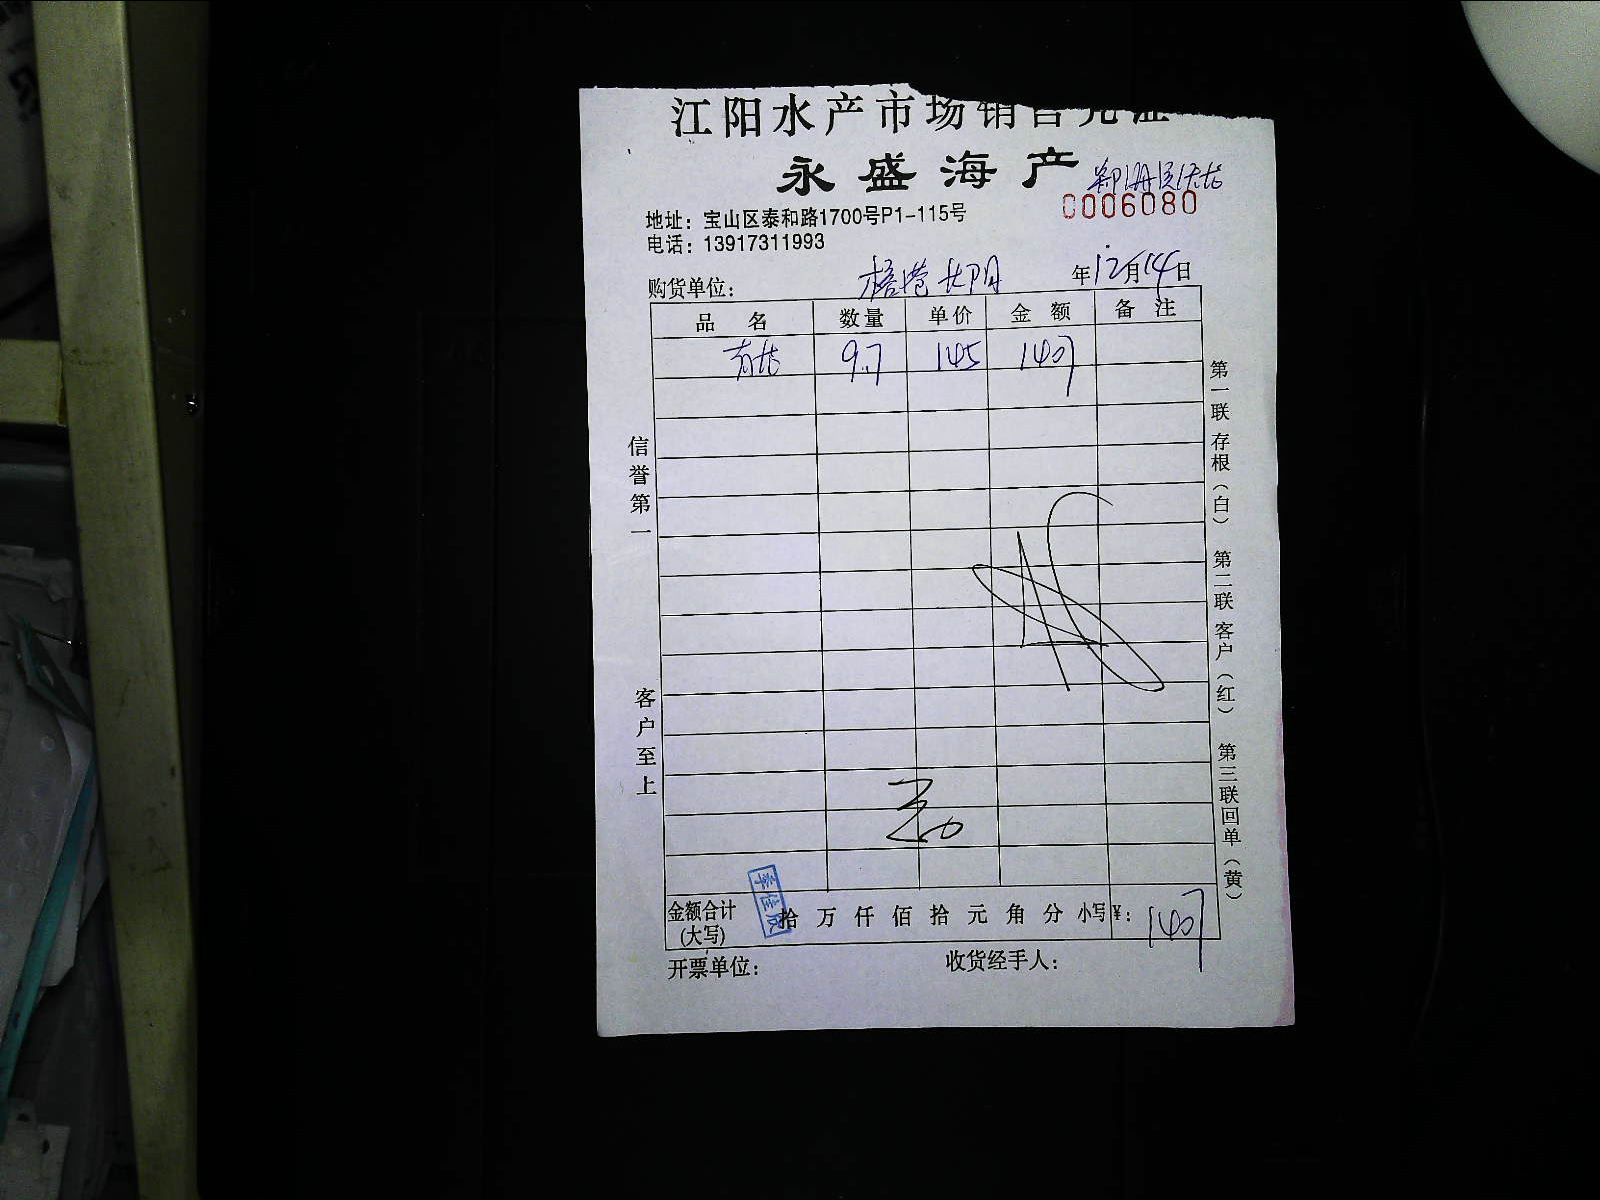 江阳水产市场销售凭证
永盛海产
0006080
地址：宝山区泰和路1700号P1-115号
电话：13917311993
购货单位：
年12月14日
品名 数量 单价 金额 备注
9.7 145 1407
信誉第一
客户至上
第一联存根（白）
第二联客户（红）
第三联回单（黄）
金额合计(大写) 拾万仟佰拾元角分 小写¥：1407
李佳欣
开票单位：
收货经手人：